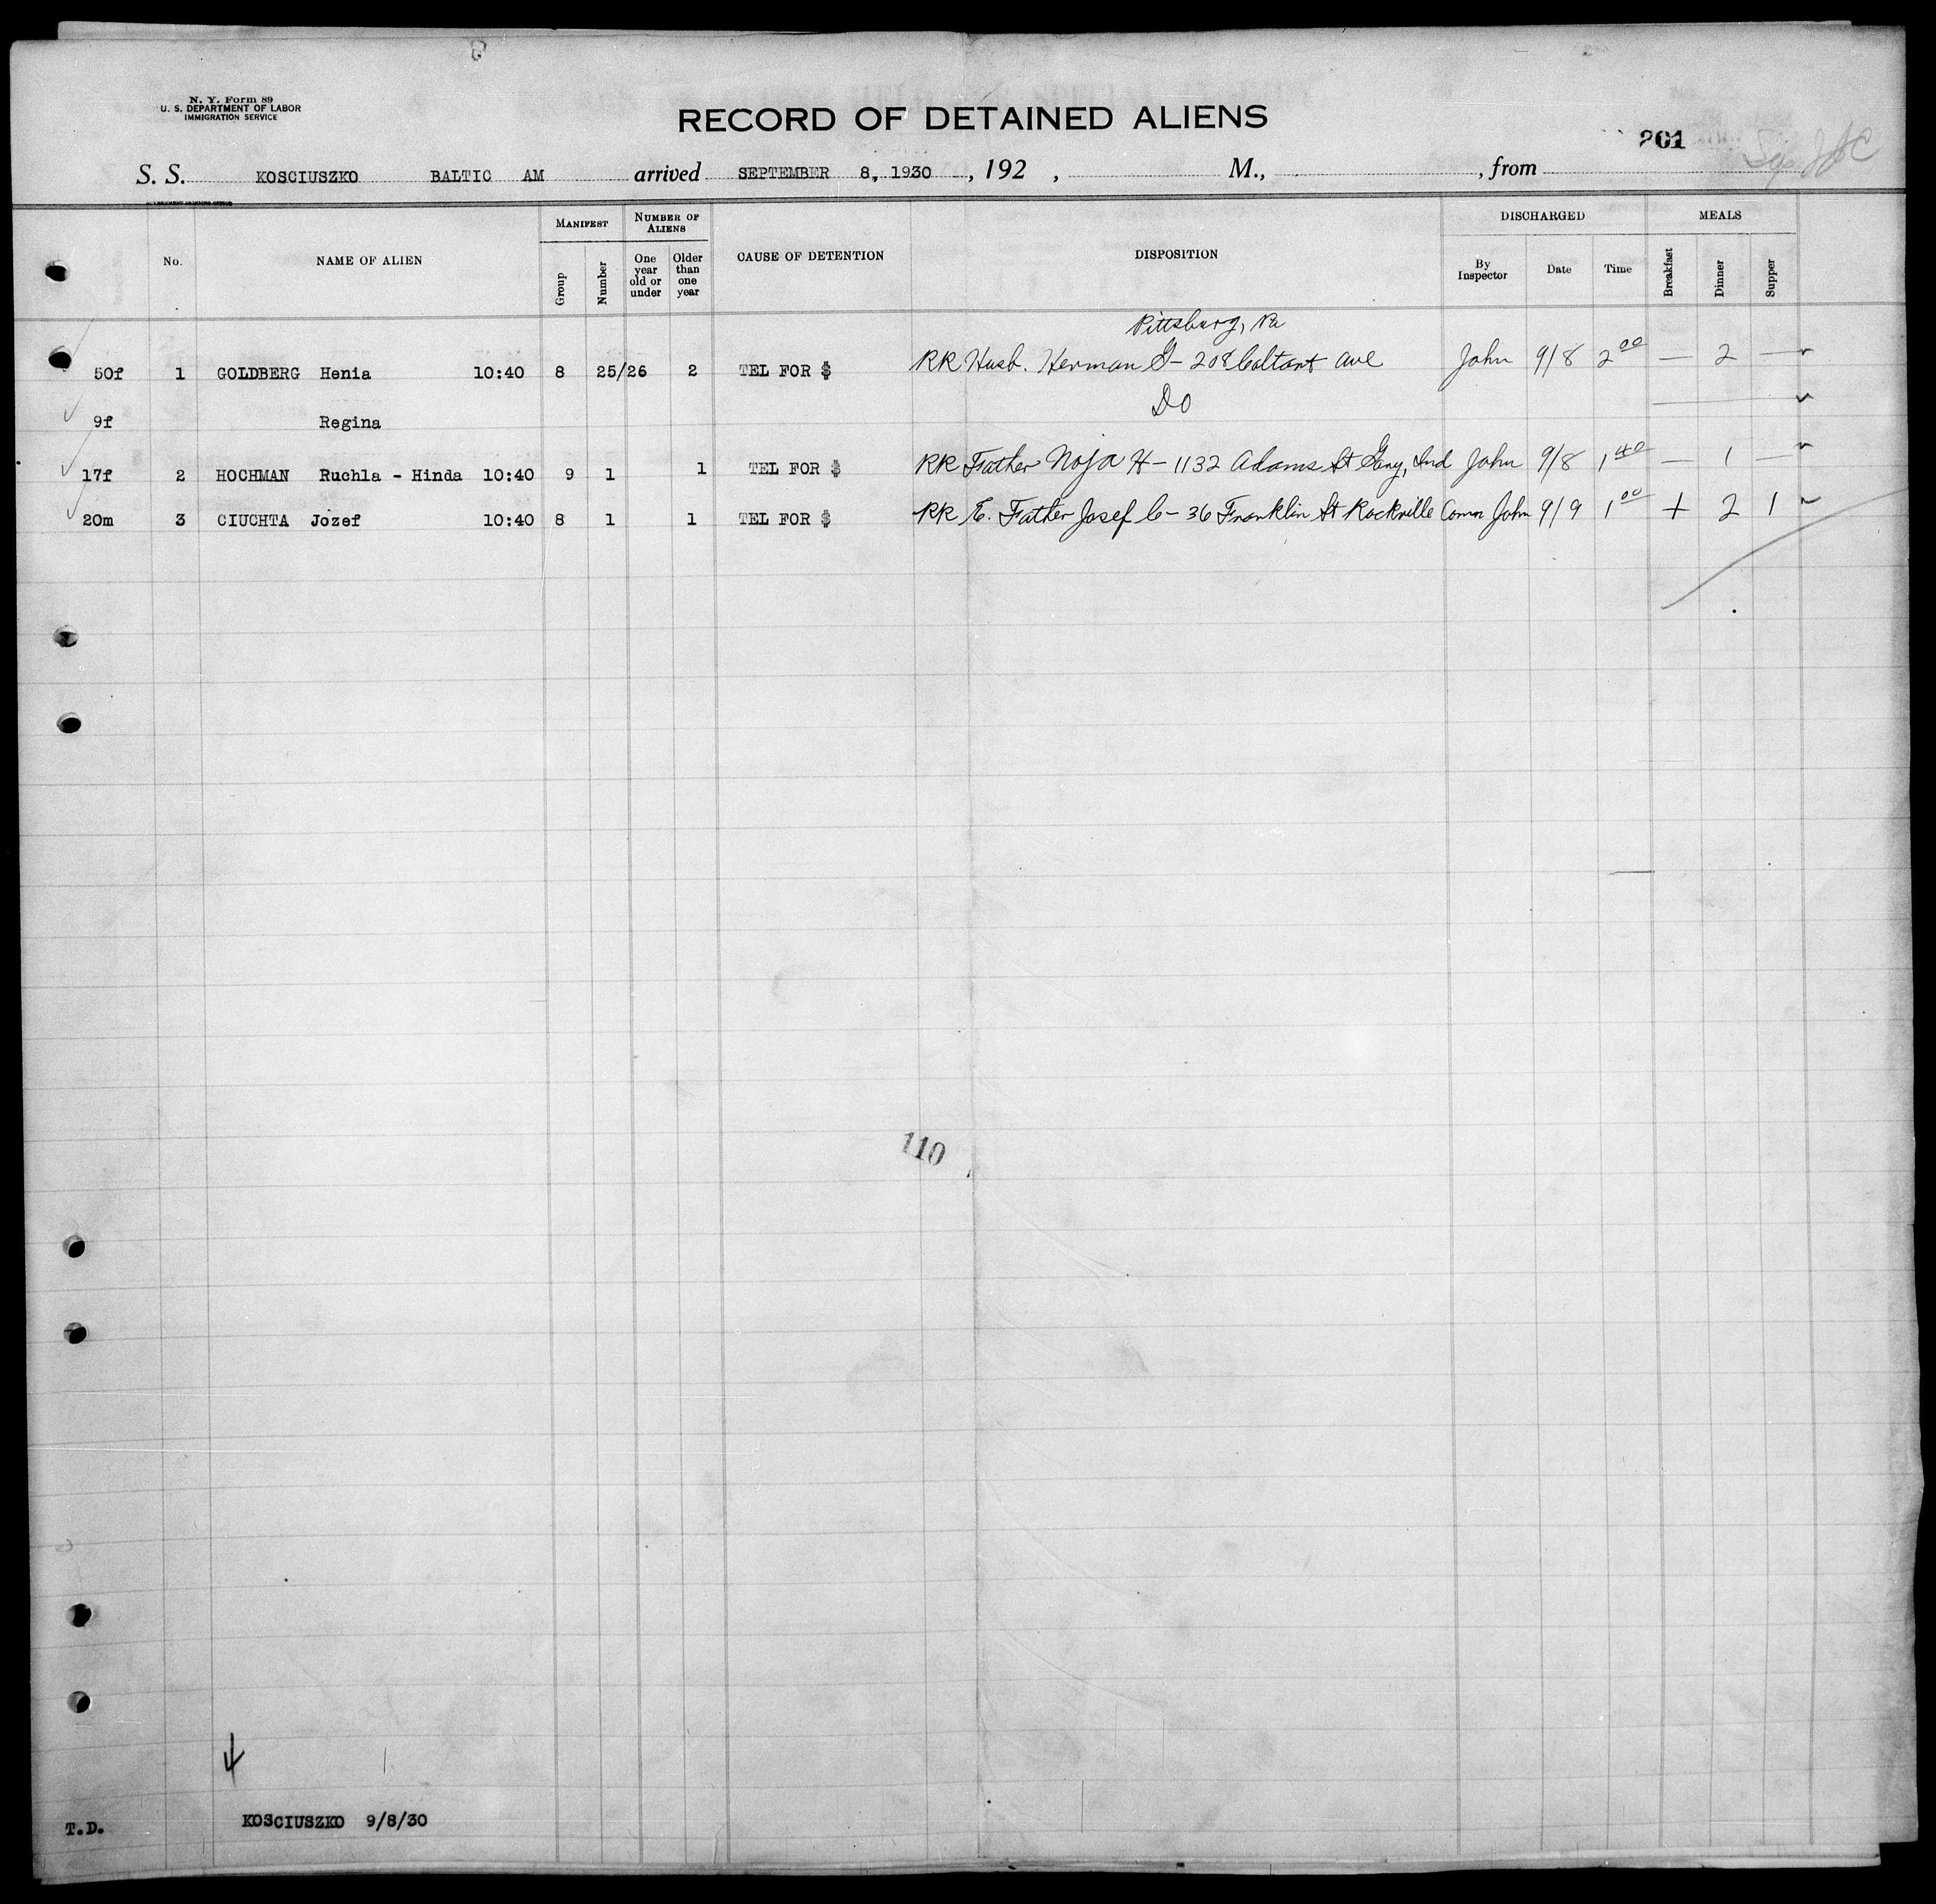 N. Y. Form 89
U. S. DEPARTMENT OF LABOR
IMMIGRATION SERVICE
RECORD OF DETAINED ALIENS
201
S. S. KOSCIUSZKO BALTIC AM arrived SEPTEMBER 8, 1930, 192 , M., , from
No. NAME OF ALIEN MANIFEST Group Number NUMBER OF ALIENS One year old or under Older than one year CAUSE OF DETENTION DISPOSITION DISCHARGED By Inspector Date Time MEALS Breakfast Dinner Supper
Pittsburg, Pa
50f 1 GOLDBERG Henia 10:40 8 25/26 2 TEL FOR $ RR Husb. Herman G - 208 Ave John 9/8 2 00 — 2 —
9f Regina DO
17f 2 HOCHMAN Ruchla - Hinda 10:40 9 1 1 TEL FOR $ RR Father Noja H - 1132 Adams St Gary, Ind John 9/8 1 40 — 1 —
20m 3 CIUCHTA Jozef 10:40 8 1 1 TEL FOR $ RR E. Father Josef C - 36 Franklin St Rockville Conn John 9/9 1 00 + 2 1
110
T.D. KOSCIUSZKO 9/8/30